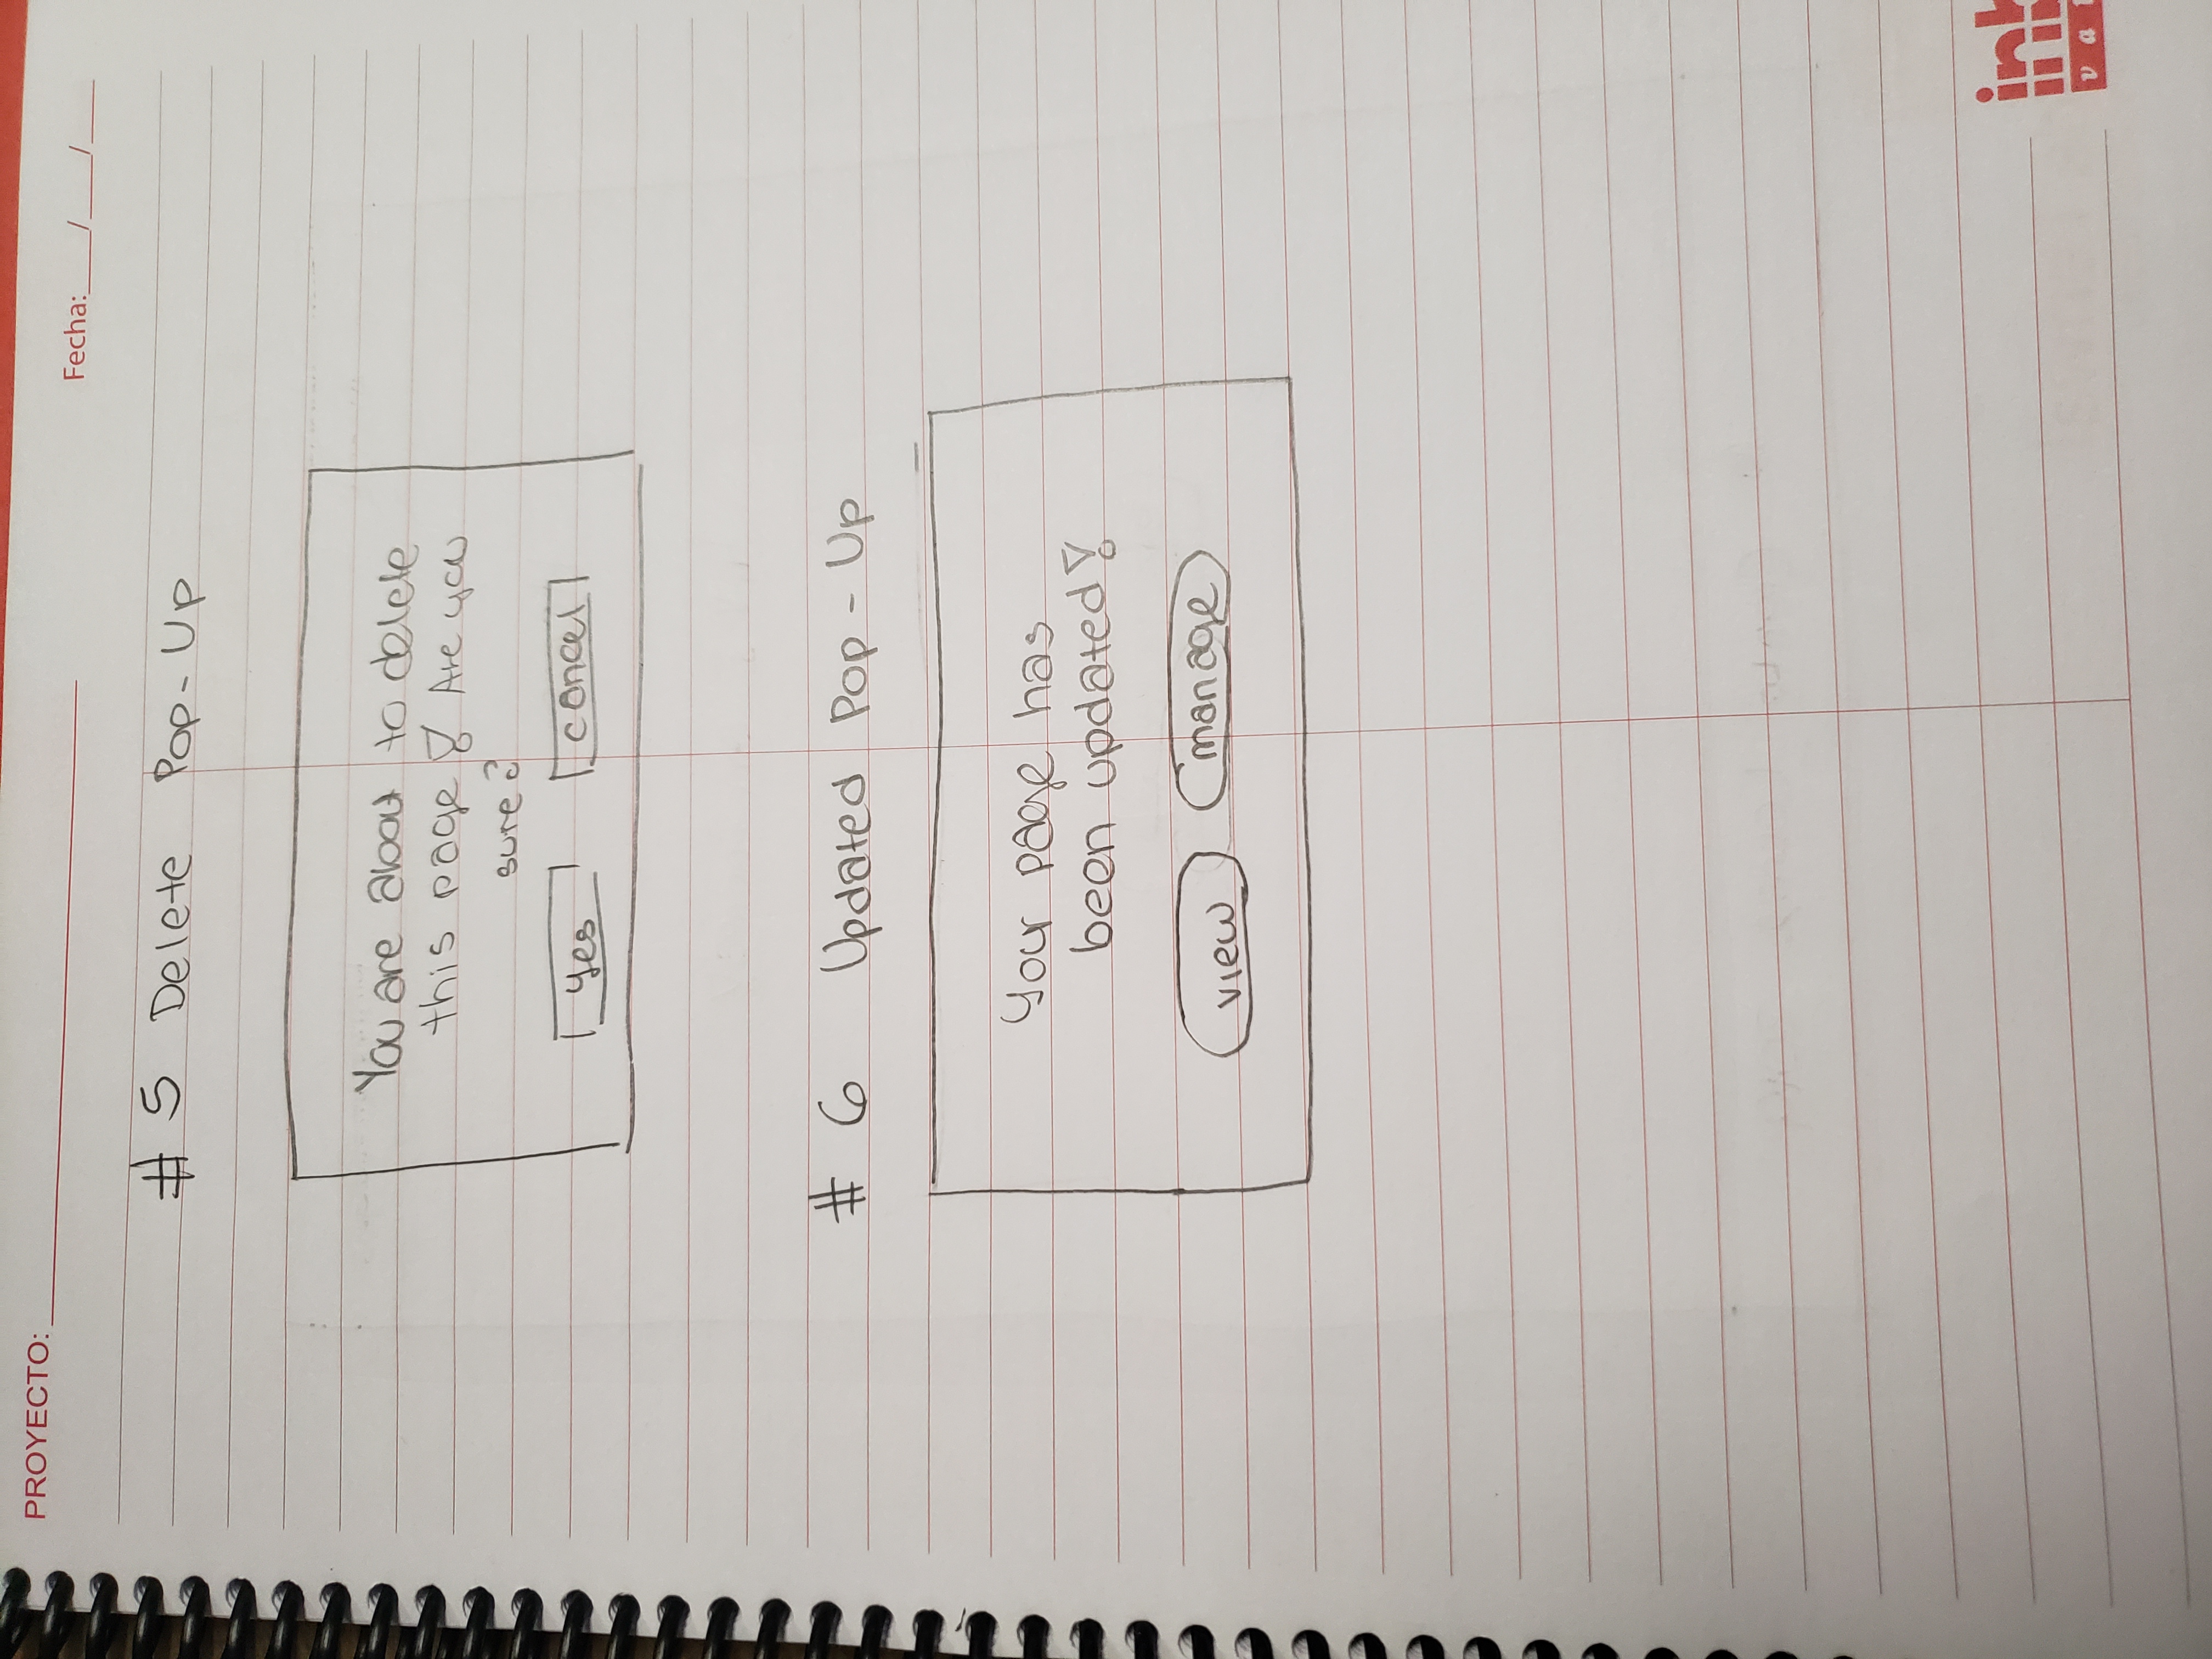 PROYECTO:
Fecha: / /
# 5 Delete Pop-Up
You are about to delete
this page! Are you
sure?
Yes cancel
# 6 Updated Pop-Up
Your page has
been updated!
view manage